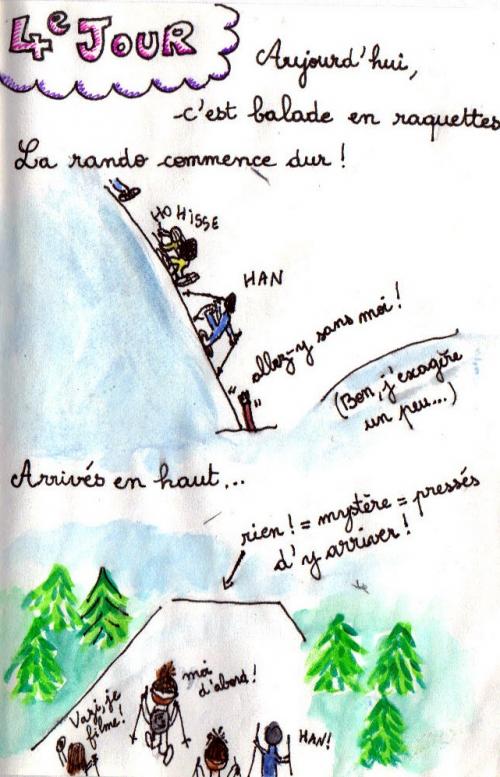 4e JOUR
Aujourd'hui,
c'est balade en raquettes
La rando commence dur !
HO HISSE
HAN
allez-y sans moi !
(Bon, j'exagère
un peu...)
Arrivés en haut...
rien ! = mystère = pressés
d'y arriver !
moi
d'abord !
Vazi, je
filme !
HAN !